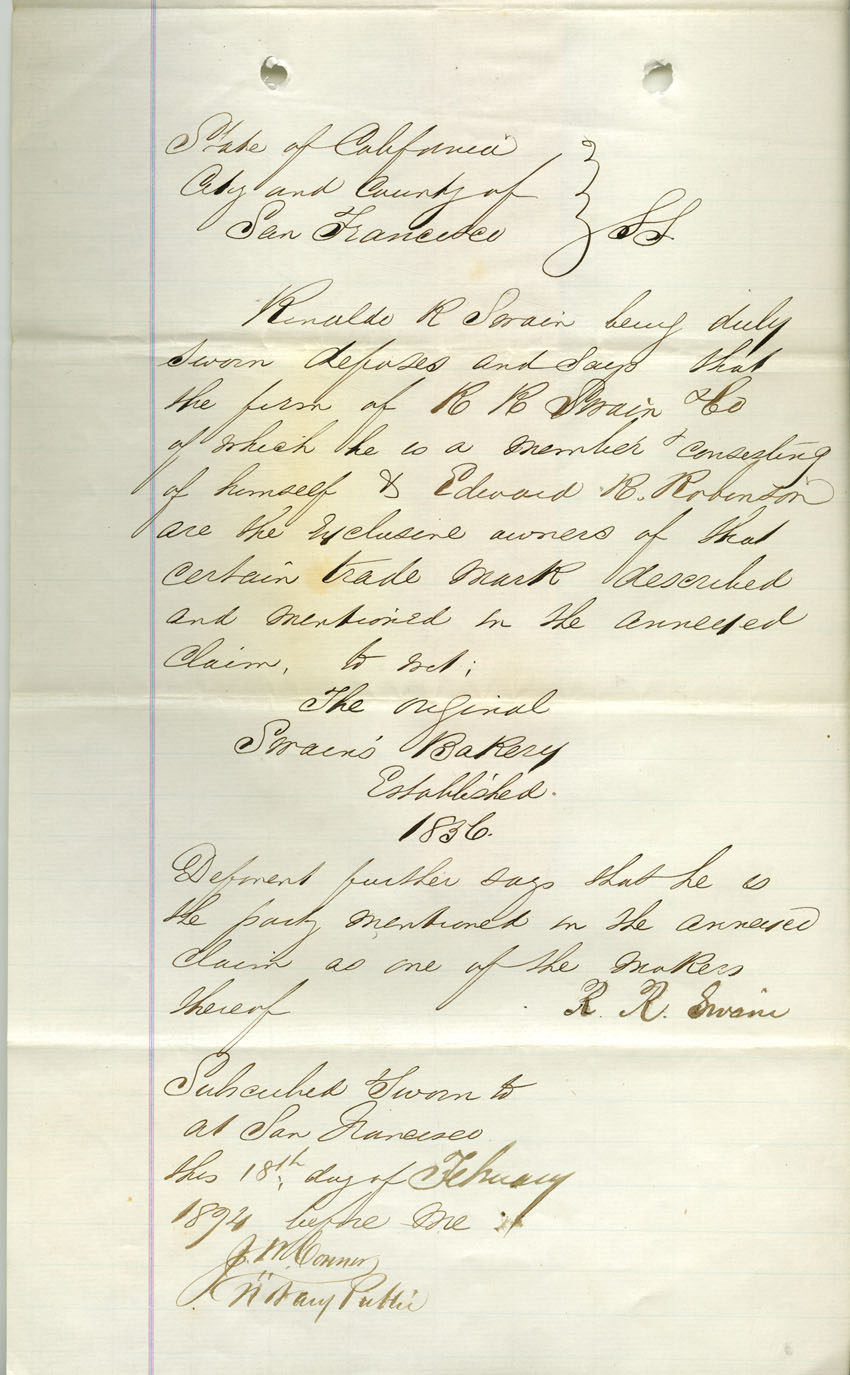 State of California
City and County of
San Francisco } SS
Rinaldo R Swain being duly
sworn deposes and says that
the firm of R R Swain & Co
of which he is a member & consisting
of himself & Edward R. Robinson
are the exclusive owners of that
certain trade mark described
and mentioned in the annexed
claim, to wit;
The original
Swain's Bakery
Established.
1836.
Deponent further says that he is
the party mentioned in the annexed
claim as one of the makers
thereof R. R. Swain
Subscribed & Sworn to
at San Francisco
this 18th day of February
before me
Notary Public